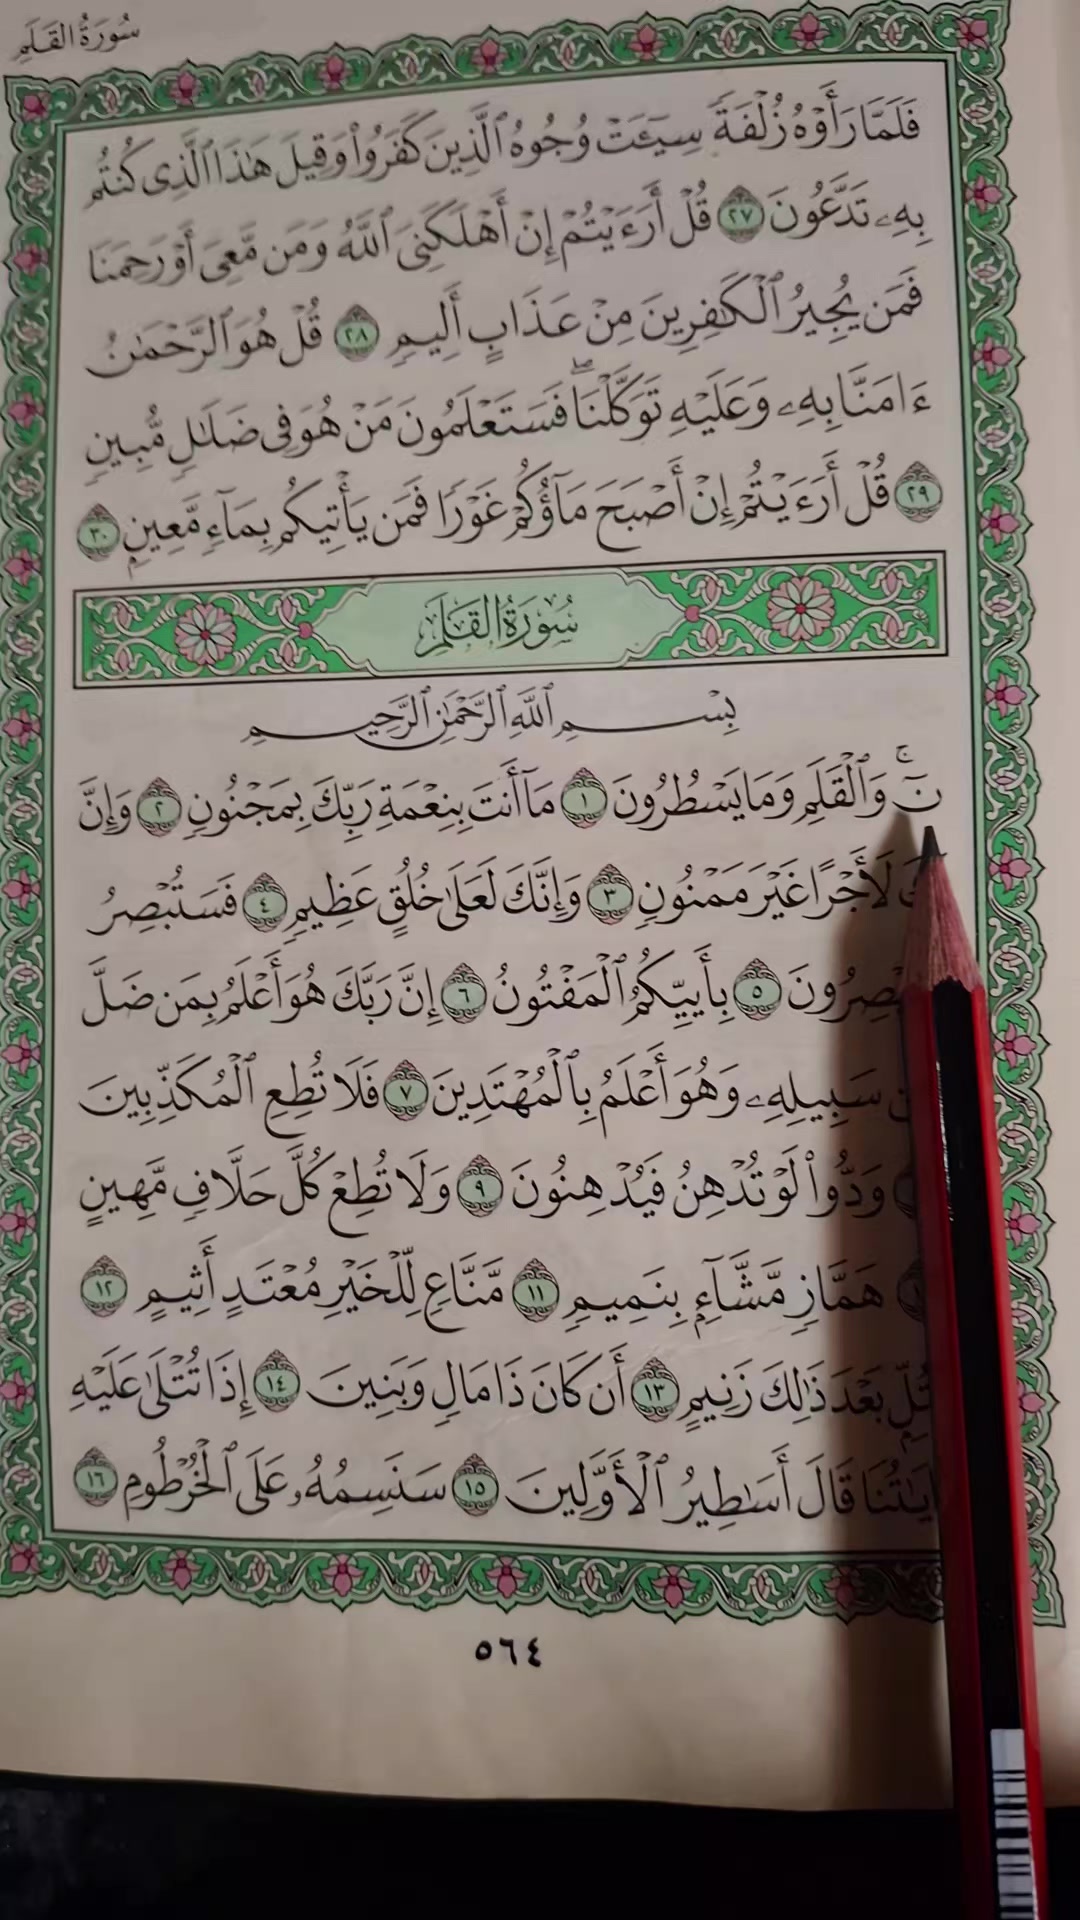 سُورَةُ القَلَمِ
فَلَمَّا رَأَوْهُ زُلْفَةً سِيٓـَٔتْ وُجُوهُ ٱلَّذِينَ كَفَرُواْ وَقِيلَ هَٰذَا ٱلَّذِى كُنتُم
بِهِۦ تَدَّعُونَ ٢٧ قُلْ أَرَءَيْتُمْ إِنْ أَهْلَكَنِىَ ٱللَّهُ وَمَن مَّعِىَ أَوْ رَحِمَنَا
فَمَن يُجِيرُ ٱلْكَٰفِرِينَ مِنْ عَذَابٍ أَلِيمٍ ٢٨ قُلْ هُوَ ٱلرَّحْمَٰنُ
ءَامَنَّا بِهِۦ وَعَلَيْهِ تَوَكَّلْنَاۖ فَسَتَعْلَمُونَ مَنْ هُوَ فِى ضَلَٰلٍ مُّبِينٍ
٢٩ قُلْ أَرَءَيْتُمْ إِنْ أَصْبَحَ مَآؤُكُمْ غَوْرًا فَمَن يَأْتِيكُم بِمَآءٍ مَّعِينٍ ٣٠
سُورَةُ القَلَمِ
بِسْمِ ٱللَّهِ ٱلرَّحْمَٰنِ ٱلرَّحِيمِ
نٓۚ وَٱلْقَلَمِ وَمَا يَسْطُرُونَ ١ مَآ أَنتَ بِنِعْمَةِ رَبِّكَ بِمَجْنُونٍ ٢ وَإِنَّ
لَأَجْرًا غَيْرَ مَمْنُونٍ ٣ وَإِنَّكَ لَعَلَىٰ خُلُقٍ عَظِيمٍ ٤ فَسَتُبْصِرُ
٥ بِأَييِّكُمُ ٱلْمَفْتُونُ ٦ إِنَّ رَبَّكَ هُوَ أَعْلَمُ بِمَن ضَلَّ
سَبِيلِهِۦ وَهُوَ أَعْلَمُ بِٱلْمُهْتَدِينَ ٧ فَلَا تُطِعِ ٱلْمُكَذِّبِينَ
وَدُّواْ لَوْ تُدْهِنُ فَيُدْهِنُونَ ٩ وَلَا تُطِعْ كُلَّ حَلَّافٍ مَّهِينٍ
هَمَّازٍ مَّشَّآءٍۭ بِنَمِيمٍ ١١ مَّنَّاعٍ لِّلْخَيْرِ مُعْتَدٍ أَثِيمٍ ١٢
بَعْدَ ذَٰلِكَ زَنِيمٍ ١٣ أَن كَانَ ذَا مَالٍ وَبَنِينَ ١٤ إِذَا تُتْلَىٰ عَلَيْهِ
قَالَ أَسَٰطِيرُ ٱلْأَوَّلِينَ ١٥ سَنَسِمُهُۥ عَلَى ٱلْخُرْطُومِ ١٦
٥٦٤